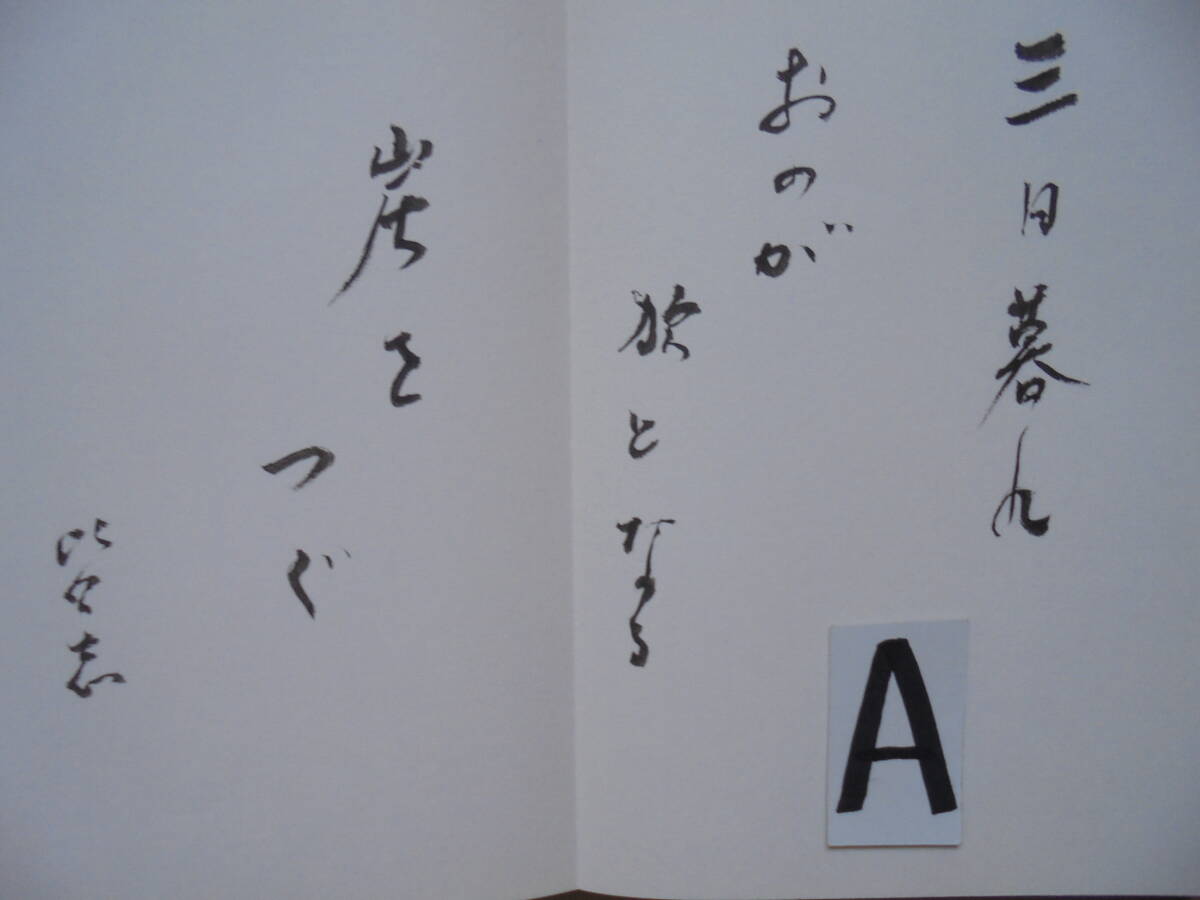 三日暮れ
おのが
となる
炭を
つぐ
A